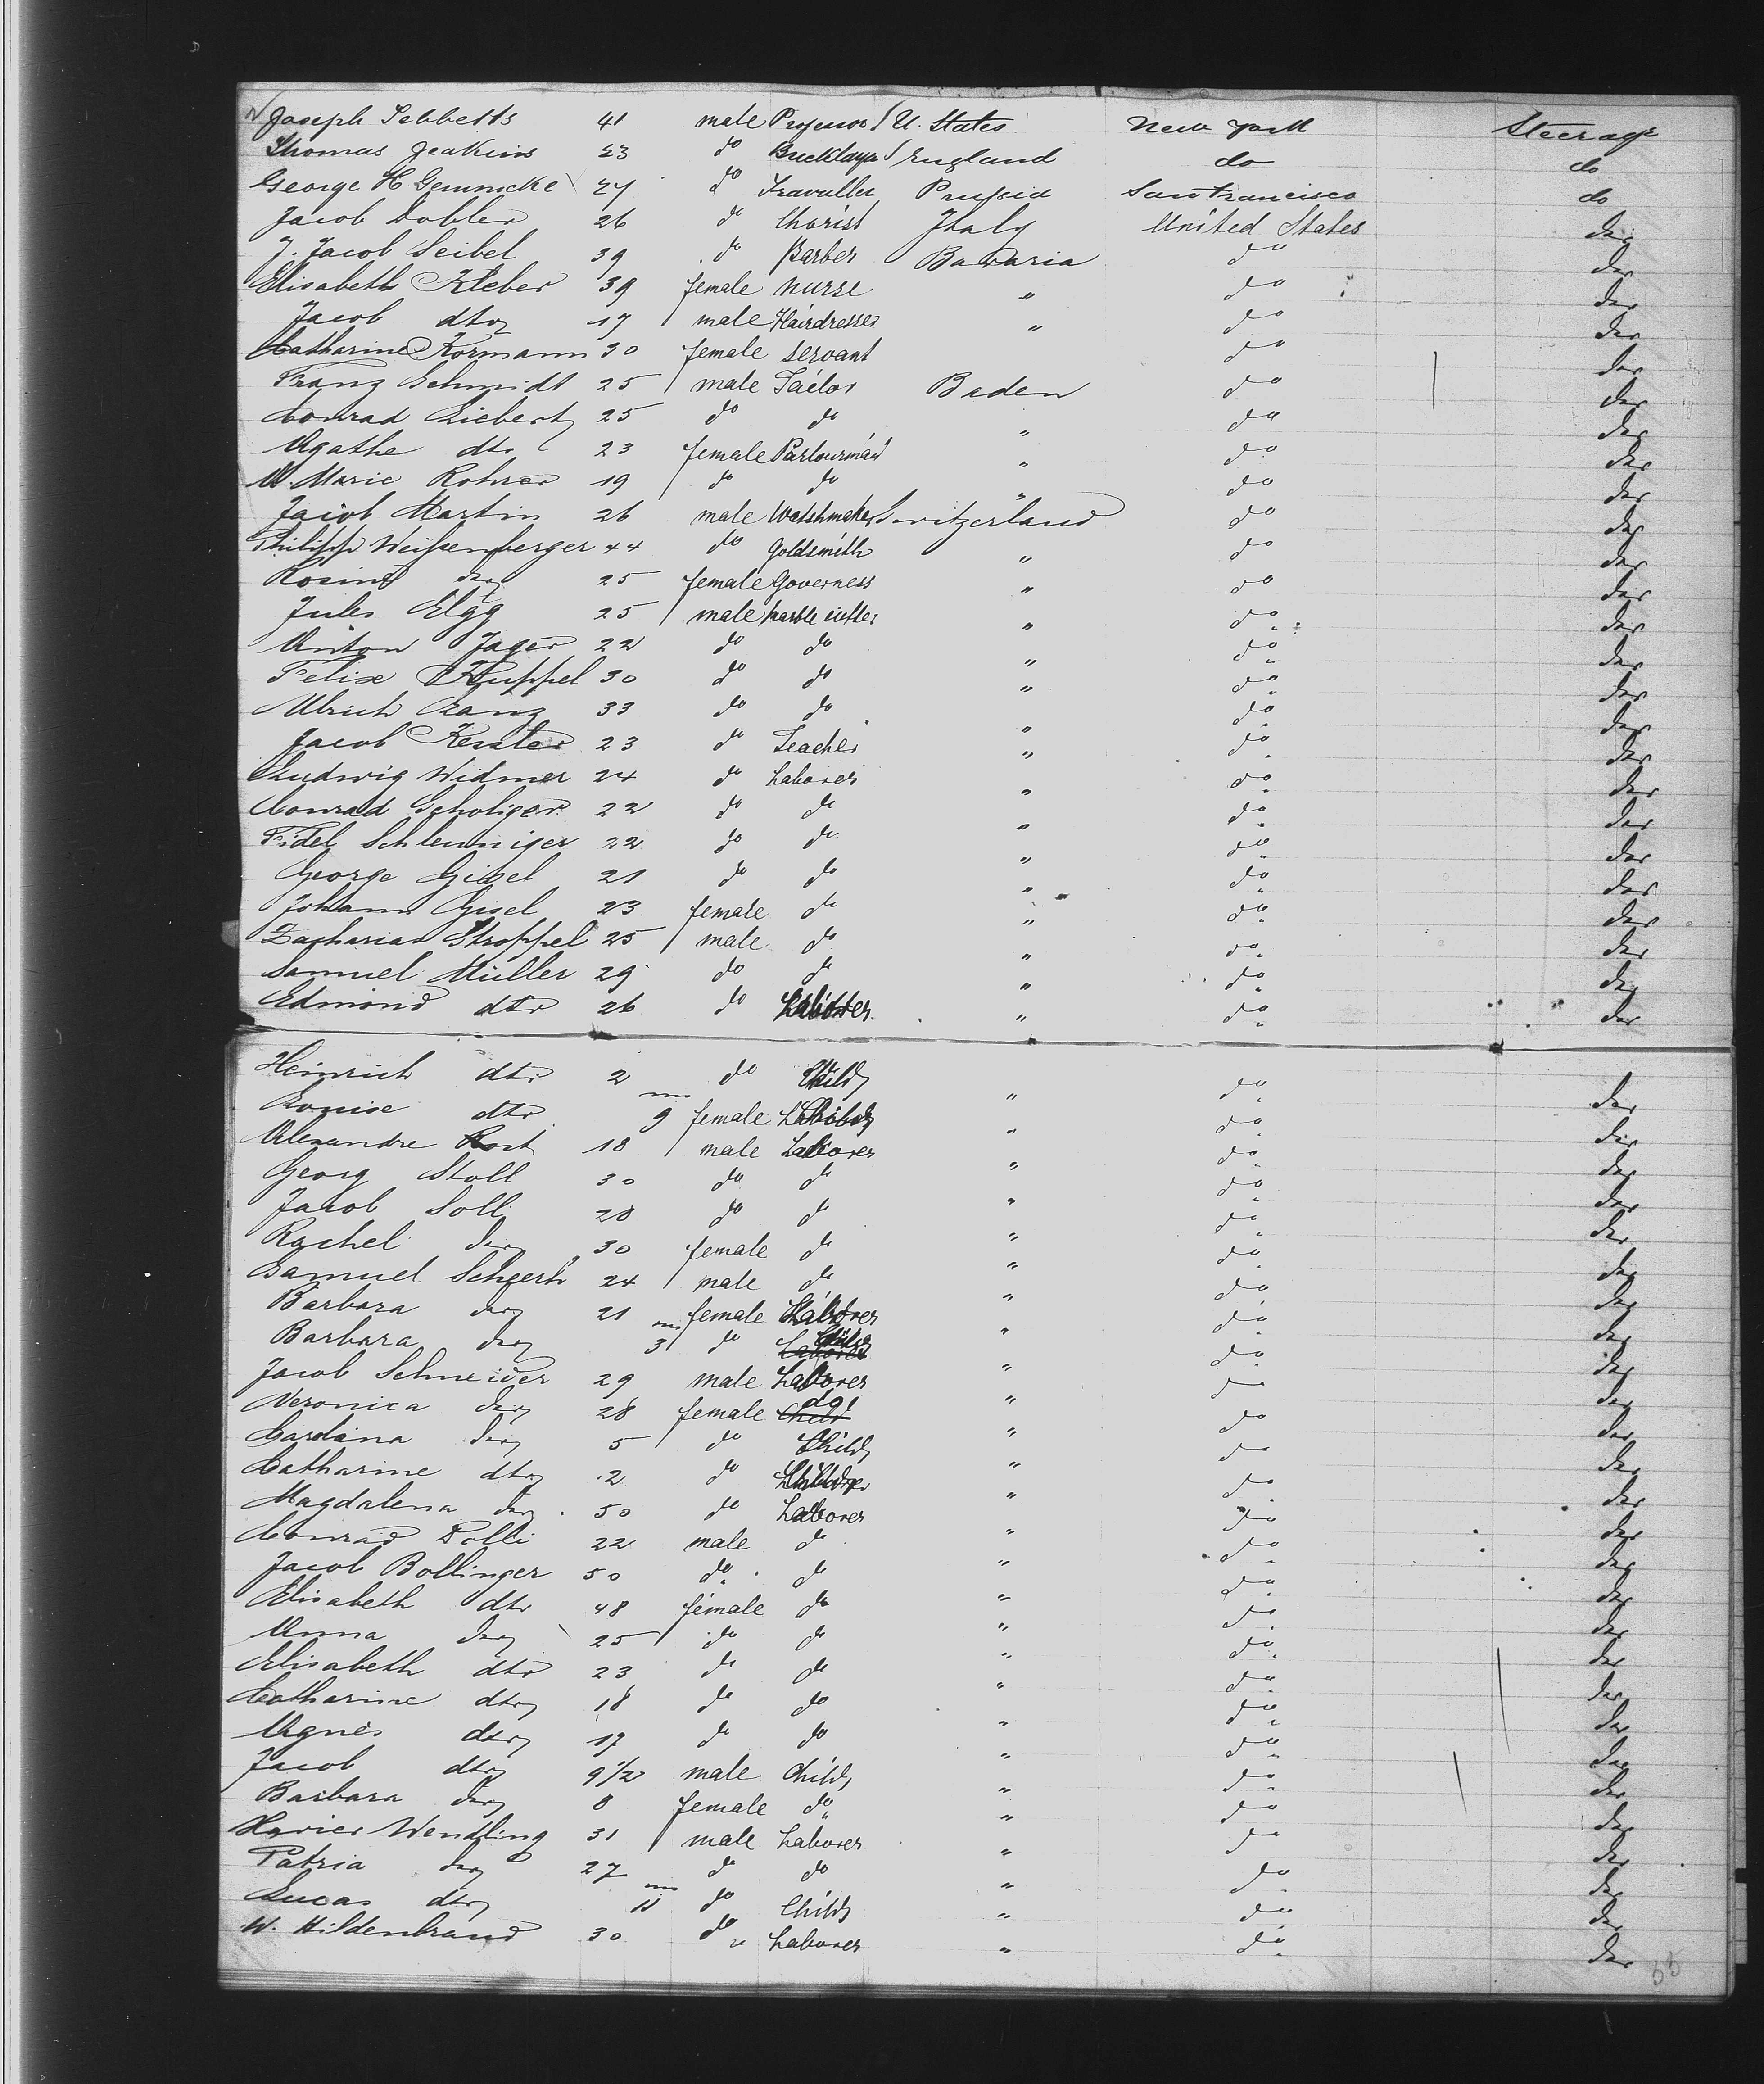 Joseph Tebbetts 41 male Professor U. States New York Steerage
Thomas Jenkins 23 do Bricklayer England do do
George H. Gemmcke 27 do Traveller Prussia San Francisco do
Jacob Dobler 26 do Chorist Italy United States do
J. Jacob Seibel 39 do Barber Bavaria do do
Elisabeth Kleber 39 female nurse " do do
Jacob dto 17 male Hairdresser " do do
Catharine Kormann 30 female servant do do
Franz Schmidt 25 male Tailor Baden do do
Conrad Liebert 25 do do " do do
Agathe dto 23 female Parlourmaid " do do
M. Marie Rohrer 19 do do " do do
Jacob Martin 26 male Watchmaker Switzerland do do
Philipp Weissenberger 44 do Goldsmith " do do
Rosina do 25 female Governess " do do
Jules Elgg 25 male marble cutter " do do
Anton Jager 22 do do " do do
Felix Kuppel 30 do do " do do
Ulrich Ranz 33 do do " do do
Jacob Kenster 23 do Teacher " do do
Ludwig Widmer 24 do Laborer " do do
Conrad Scholiger 22 do do " do do
Fidel Schleuniger 22 do do " do do
George Gissel 21 do do " do do
Johann Gisel 23 female do " do do
Zacharias Stroppel 25 male do " do do
Samuel Müller 29 do do " do do
Edmond dto 26 do Laborer " do do
Heinrich dto 2 do Child " do do
Louise dto 9 female Child " do do
Alexandre Rost 18 male Laborer " do do
Georg Stoll 30 do do " do do
Jacob Solli 28 do do " do do
Rachel do 30 female do " do do
Samuel 24 male do " do do
Barbara do 21 female Laborer " do do
Barbara do 3 do Child " do do
Jacob Schneider 29 male Laborer " do do
Veronica do 28 female do " do do
Carolina do 5 do Child " do do
Catharine dto 2 do Child " do do
Magdalena do 50 do Laborer " do do
Conrad Polli 22 male do " do do
Jacob Bollinger 50 do do " do do
Elisabeth dto 48 female do " do do
Anna do 25 do do " do do
Elisabeth dto 23 do do " do do
Catharine dto 18 do do " do do
Agnes dto 17 do do " do do
Jacob dto 9 1/2 male Child " do do
Barbara do 8 female do " do do
Xavier Wendling 31 male Laborer " do do
Patria do 27 do do " do do
Lucas dto 11 do Child " do do
W. Hildenbrand 30 do Laborer " do do